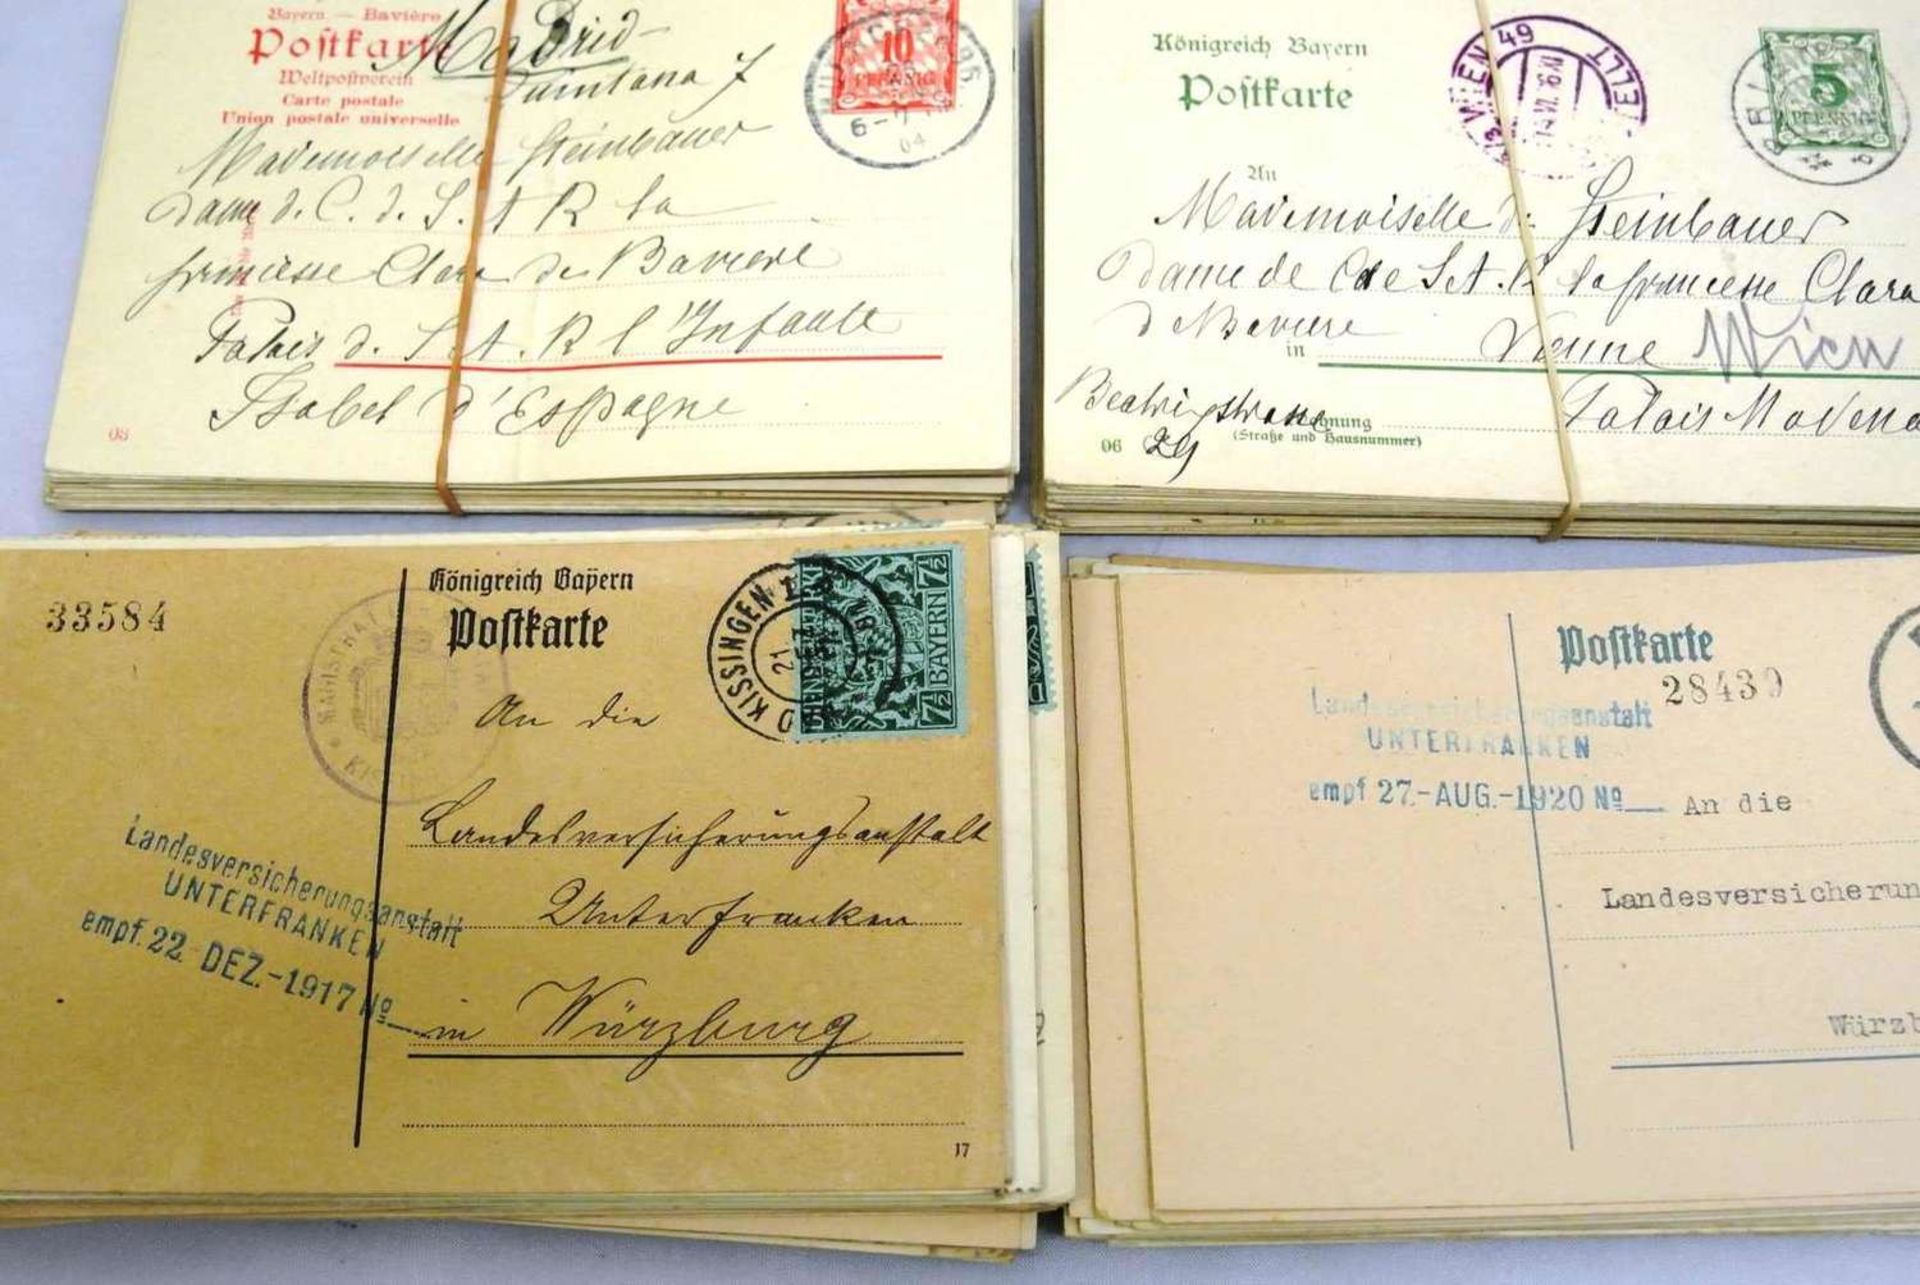 Bayern — Bavière
Postkarte
Madrid
Weltpostverein
Quintana 7
Carte postale
Union postale universelle
10
PFENNIG
6-7
04
Mademoiselle Steinbauer
Dame d. C. d. S. A R la
princesse Clara de Baviere
Palais d. S. A. R l'Infante
Isabel d'Espagne
03
Königreich Bayern
Postkarte
WIEN 49
5
PFENNIG
An
Mademoiselle de Steinbauer
Dame de C de S. A. R la princesse Clara
de Baviere
in
Vienne Wien
Beatrixstrasse
Palais Modena
(Straße und Hausnummer)
06
29
33584
Königreich Bayern
Postkarte
KISSINGEN
21
7½
BAYERN
7½
An die
Landesversicherungsanstalt
Unterfranken
in Würzburg
Landesversicherungsanstalt
UNTERFRANKEN
empf. 22. DEZ.-1917 No
17
Postkarte
28430
Landesversicherungsanstalt
UNTERFRANKEN
empf 27.-AUG.-1920 No
An die
Landesversicherun
Würzb